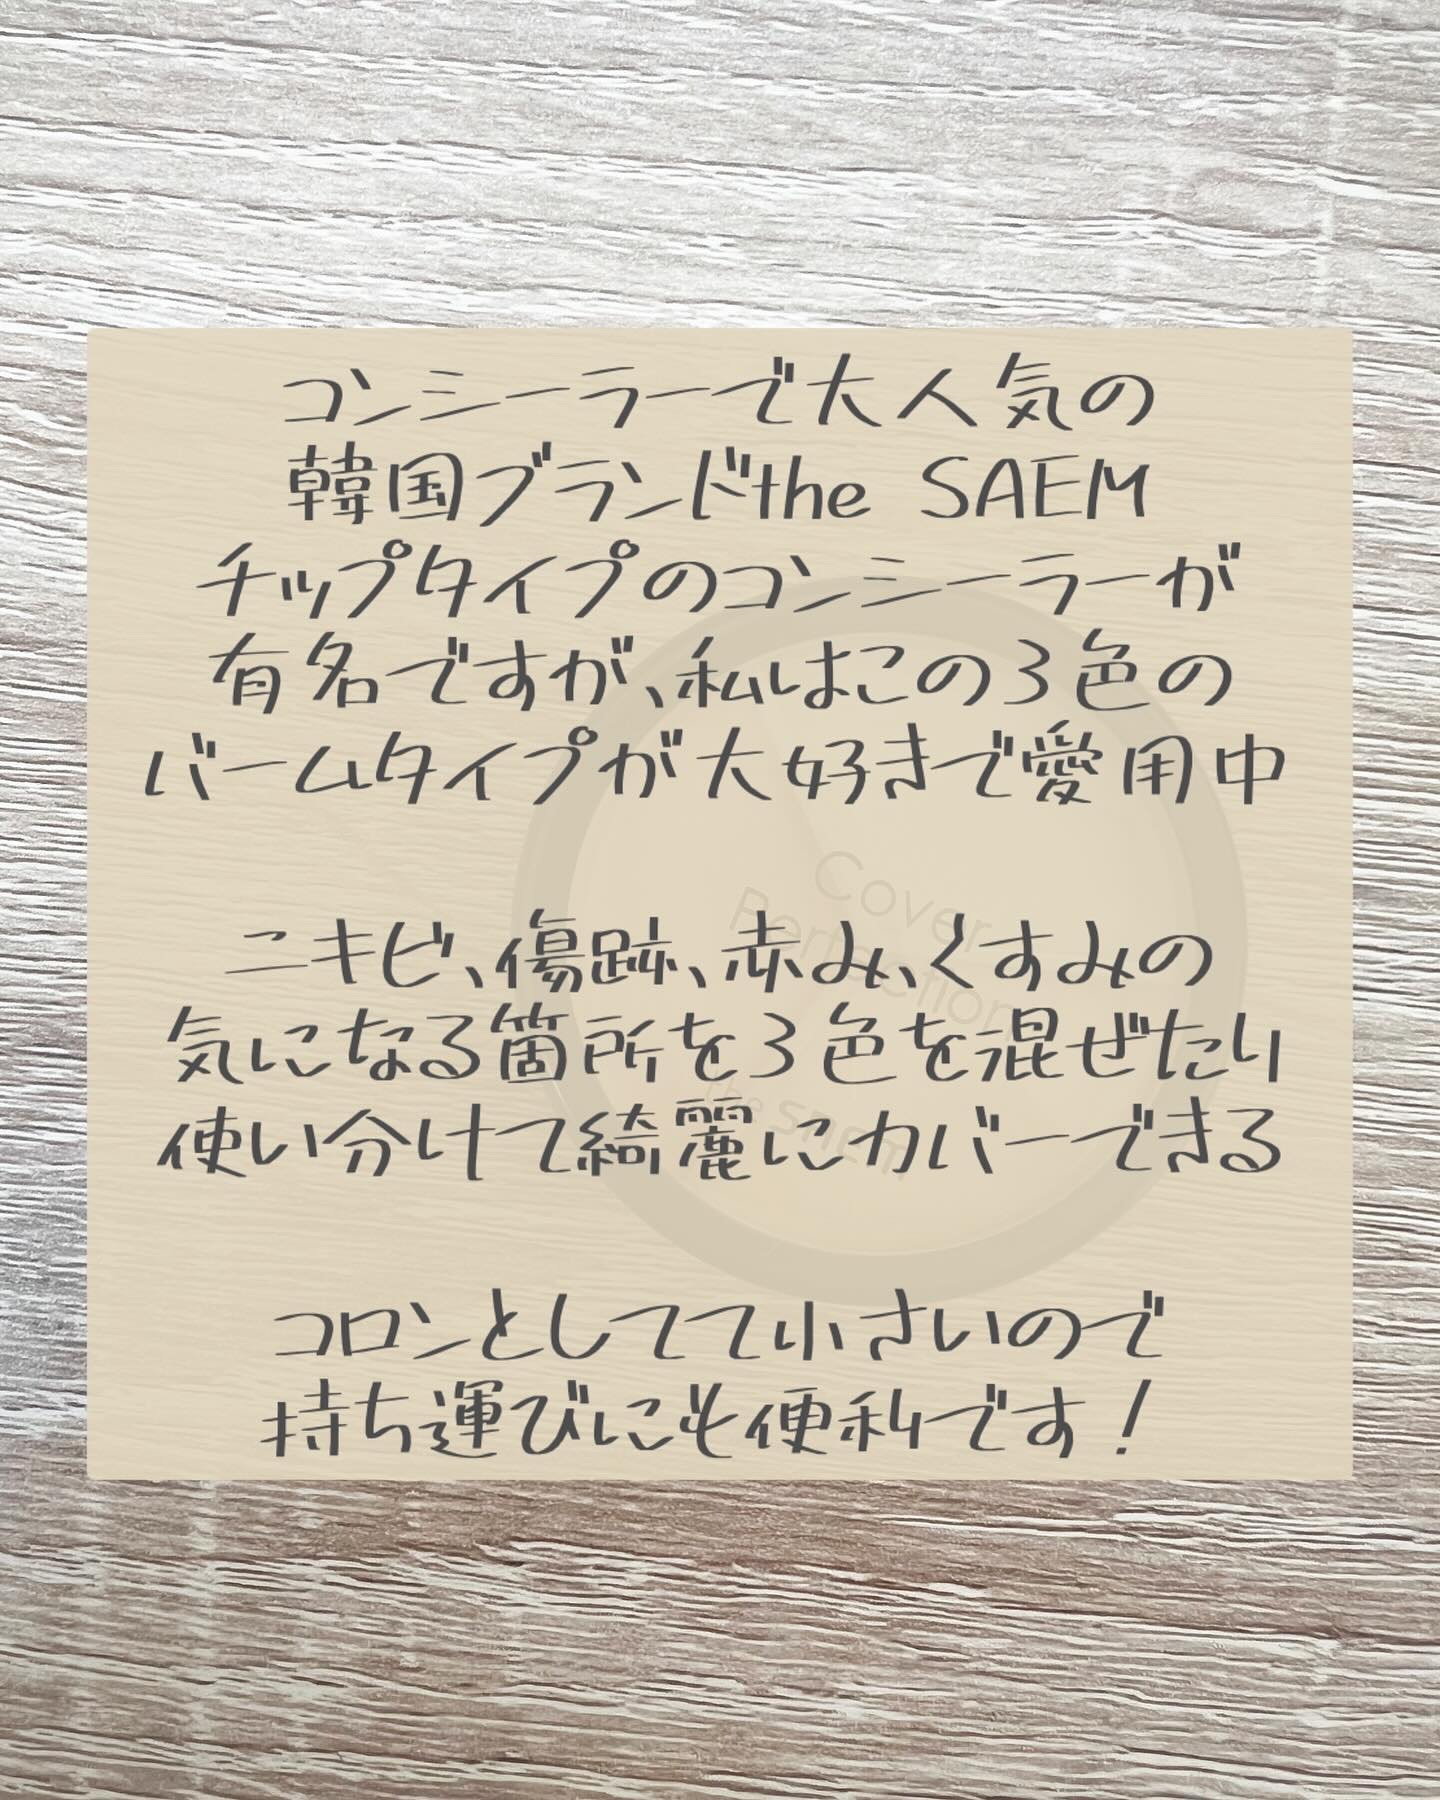 コンシーラーで大人気の
韓国ブランドthe SAEM
チップタイプのコンシーラーが
有名ですが、私はこの3色の
バームタイプが大好きで愛用中
ニキビ、傷跡、赤み、くすみの
気になる箇所を3色を混ぜたり
使い分けて綺麗にカバーできる
コロンとしてて小さいので
持ち運びにも便利です！
Cover
Perfection
the SAEM